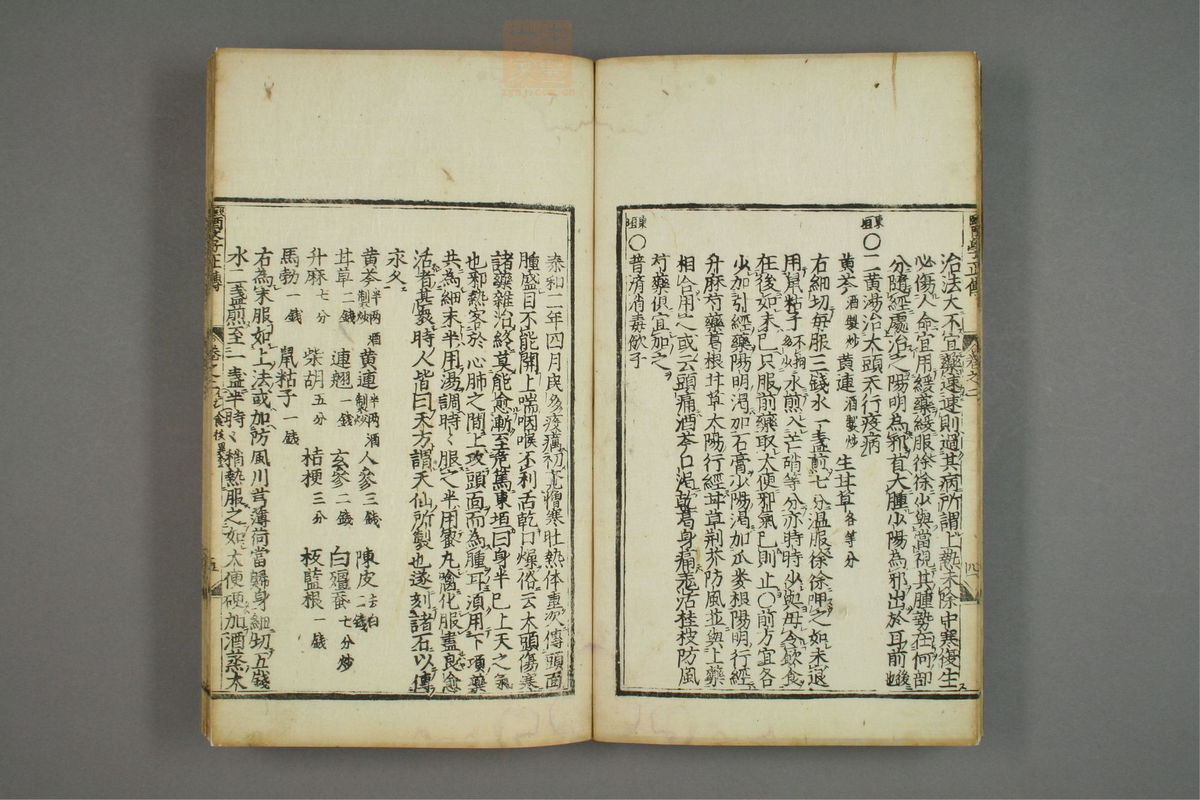 治法大不宜藥速速則過其病所謂上熱未除中寒復生
必傷人命宜用緩藥緩服徐徐少與當視其腫勢在何部
分隨經處治之陽明為邪首大腫少陽為邪出於耳前後也
東垣
○二黃湯治大頭天行疫病
黄芩酒製炒 黄連酒製炒 生甘草各等分
右細切每服三錢水一盞煎七分温服徐徐呷之如未退
用鼠粘子不拘多少水煎入芒硝等分亦時時少與毋令飲食
在後如未已只服前藥取大便邪氣已則止○前方宜各
少加引經藥陽明渴加石膏少陽渴加瓜蔞根陽明行經
升麻芍藥葛根甘草太陽行經甘草荆芥防風並與上藥
相合用之或云頭痛酒芩口渴乾葛身痛羗活桂枝防風
芍藥俱宜加之
東垣
○普濟消毒飲子
泰和二年四月民多疫癘初覺憎寒壮熱体重次傳頭面
腫盛目不能開上喘咽喉不利舌乾口燥俗云大頭傷寒
諸藥雜治終莫能愈漸至危篤東垣曰身半已上天之氣
也邪熱客於心肺之間上攻頭面而為腫耳湏用下項藥
共為細末半用湯調時〻服之半用蜜丸噙化服盡良愈
活者甚衆時人皆曰天方謂天仙所製也遂刻諸石以傳
永久
黄芩半两酒製炒 黄連半两酒製炒 人參三錢 陳皮去白二錢
甘草二錢 連翹一錢 玄參二錢 白殭蚕七分炒
升麻七分 柴胡五分 桔梗三分 板藍根一錢
馬勃一錢 鼠粘子一錢
右為末服如上法或加防風川芎薄荷當歸身細切五錢
水二盞煎至一盞半時〻稍熱服之如大便硬加酒蒸大